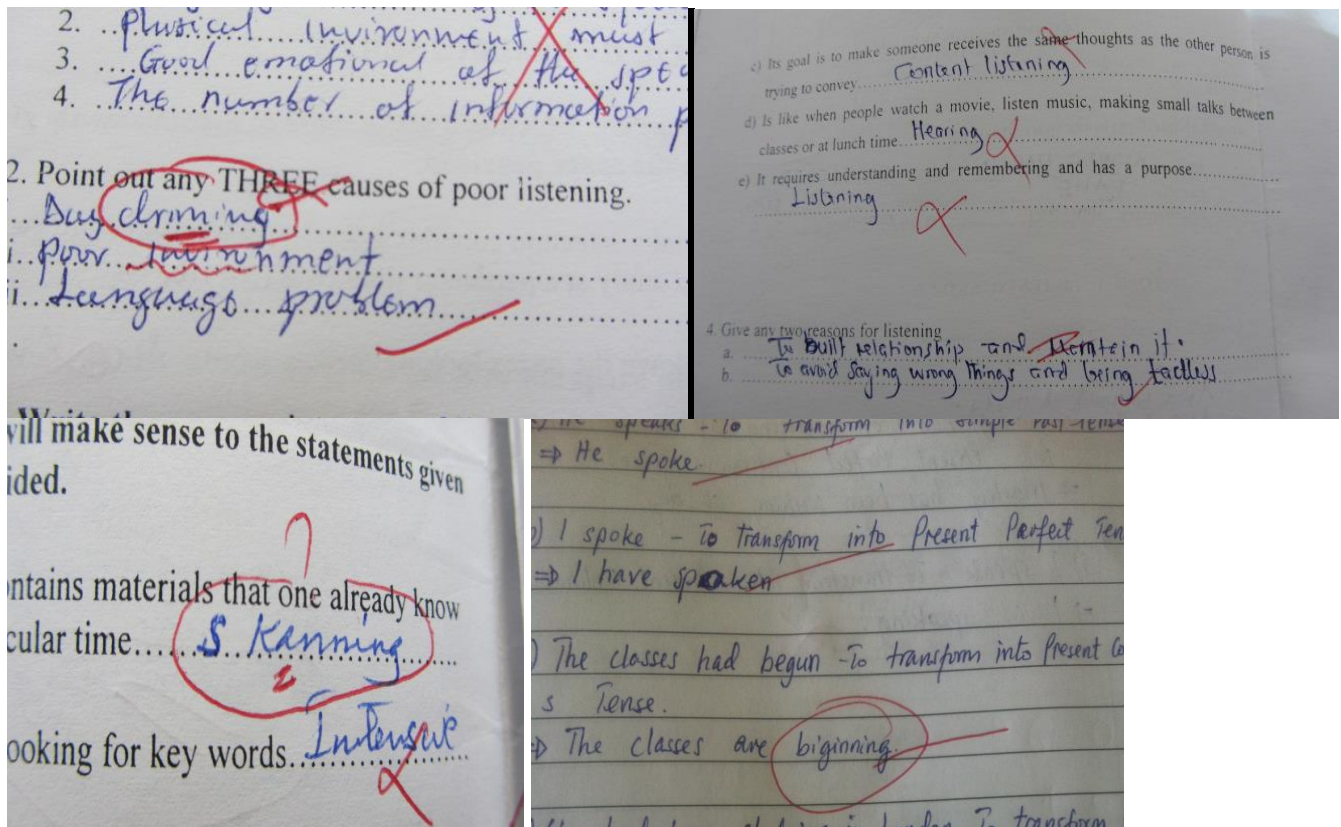 2. Plusical Invironment must
3. Good emotional of the spea
4. The number of information p
2. Point out any THREE causes of poor listening.
Day driming
i. poor Invironment
ii. Language problem
c) Its goal is to make someone receives the same thoughts as the other person is
trying to convey Content listening
d) Is like when people watch a movie, listen music, making small talks between
classes or at lunch time. Hearing
e) It requires understanding and remembering and has a purpose
Listening
4. Give any two reasons for listening
a. To Built relationship and it.
b. To avoid saying wrong things and being tactless
will make sense to the statements given
ided.
ontains materials that one already know
cular time S Kanning
ooking for key words Intensive
He speaks - To transform into simple Past Tense
⇒ He spoke.
b) I spoke - To transform into Present Perfect Ten
⇒ I have spoken
) The classes had begun - To transform into Present Co
s Tense.
⇒ The classes are biginning.
To transform